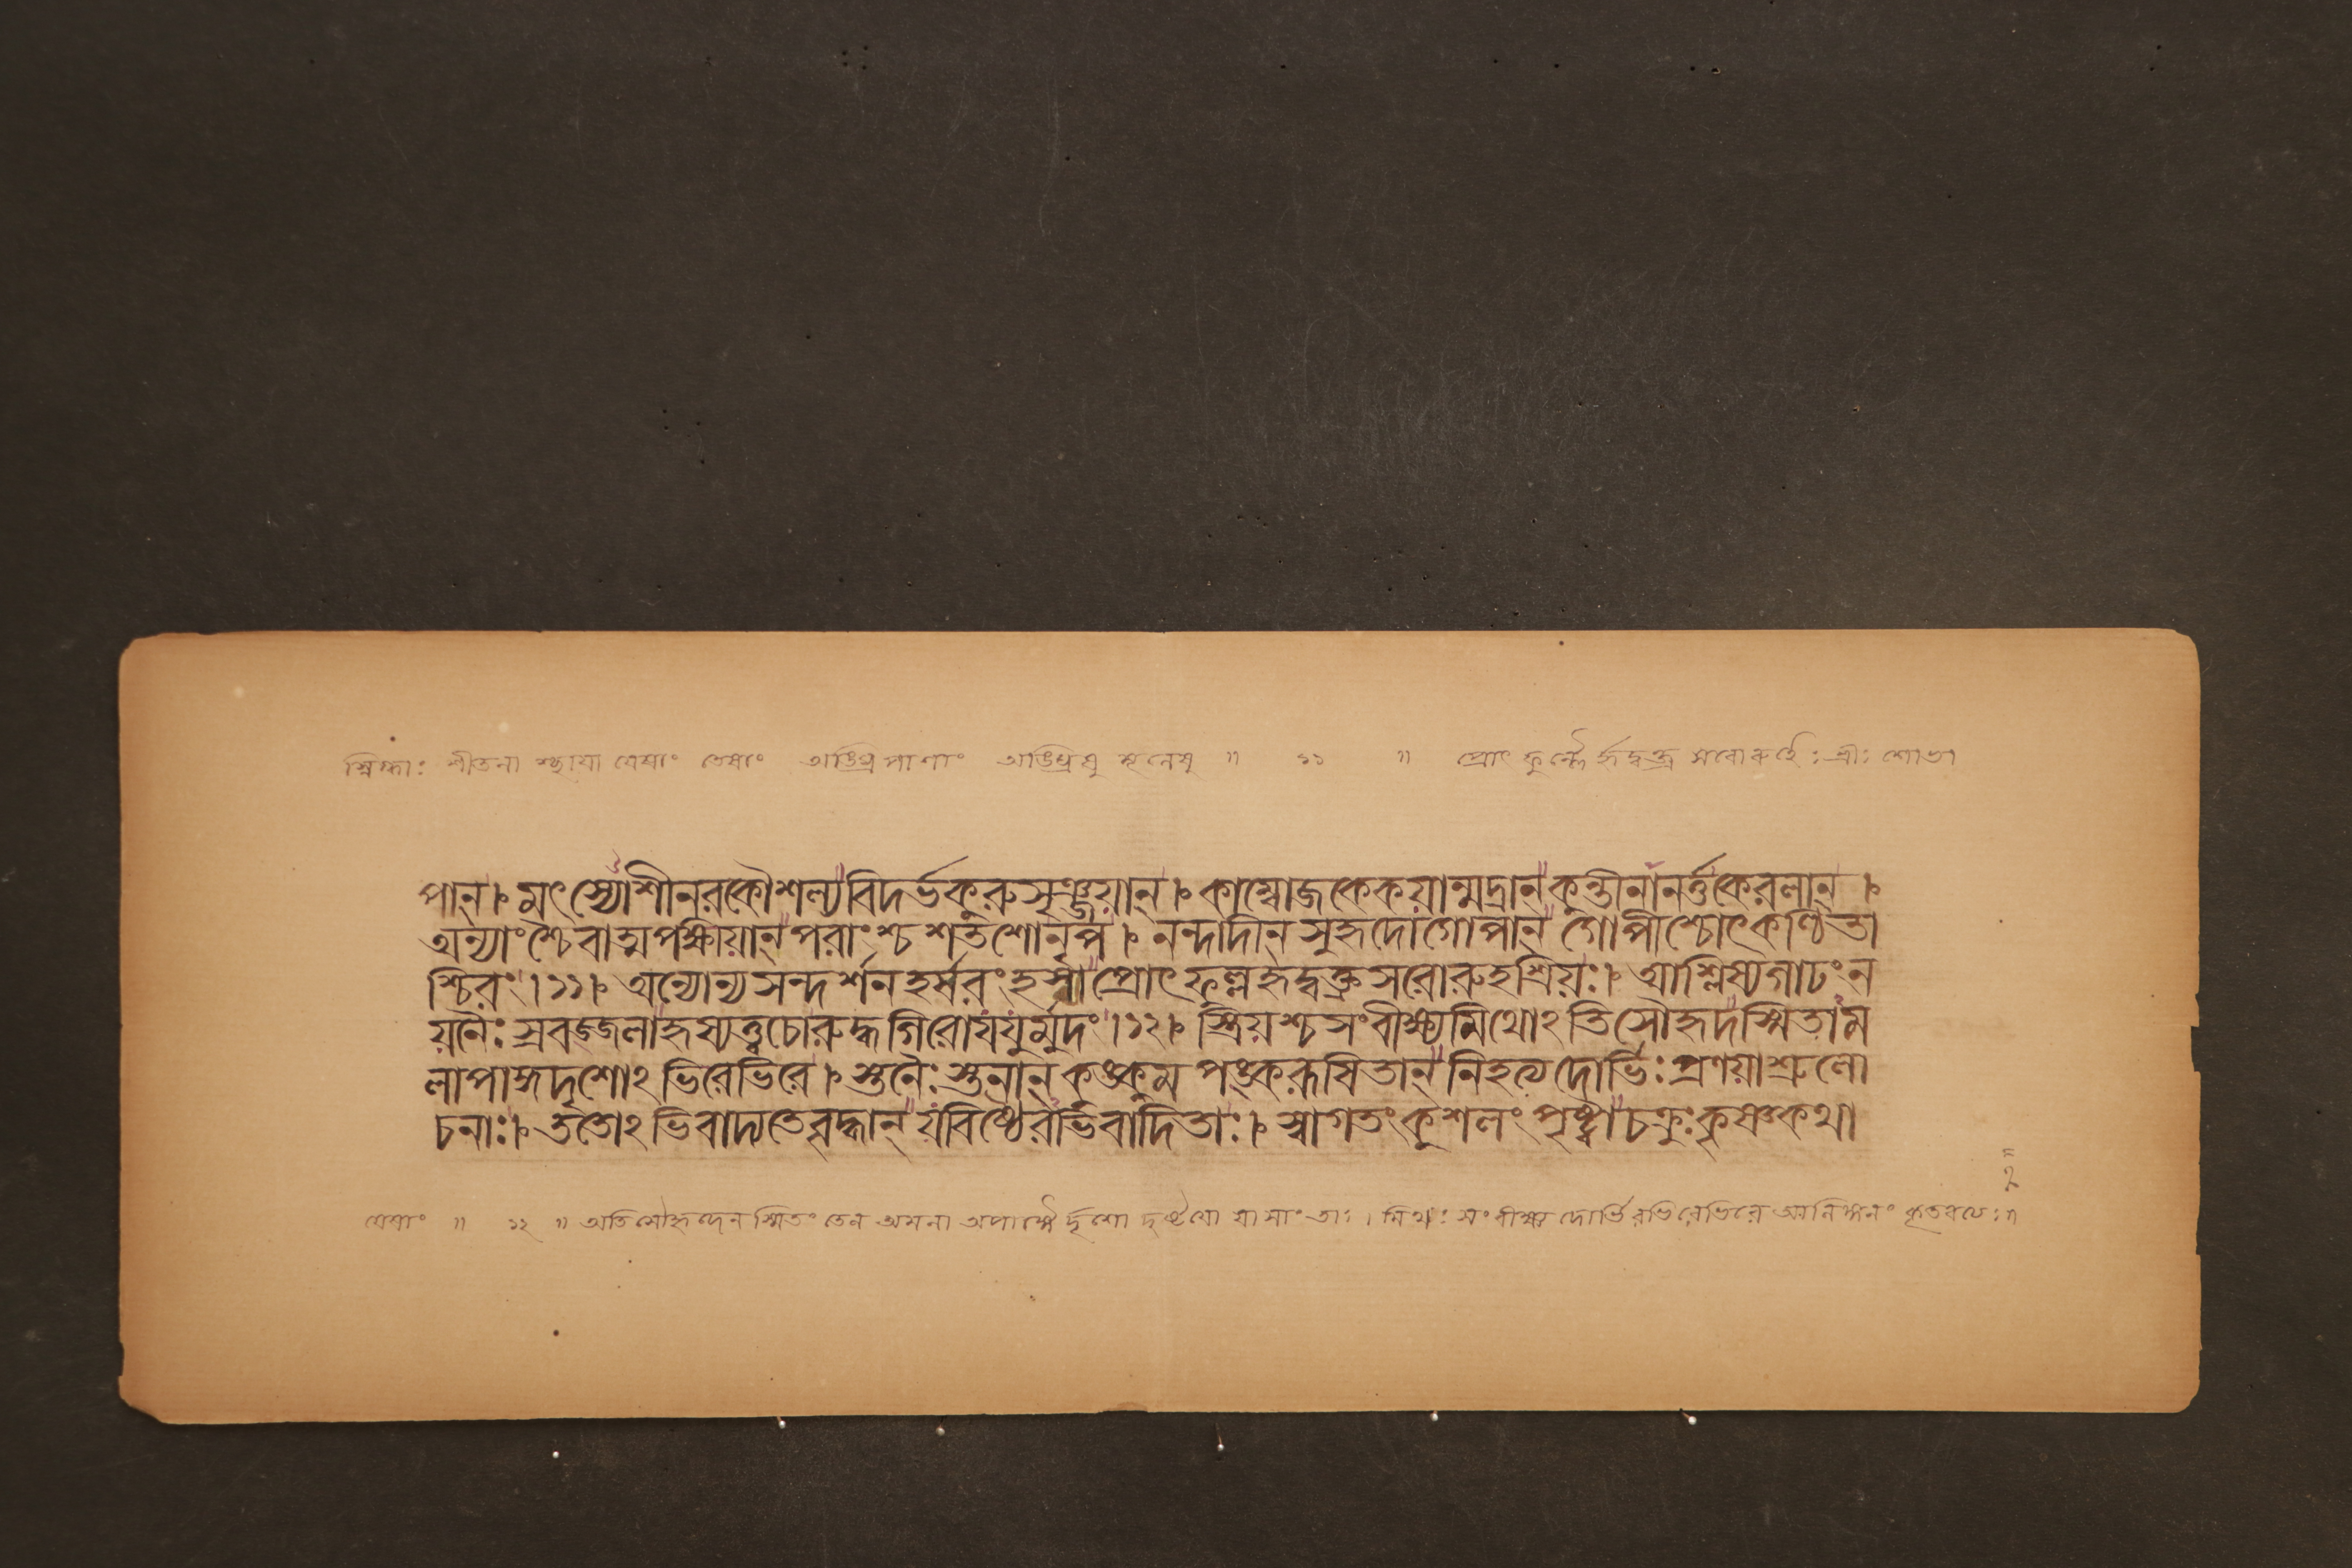 স্নিগ্ধাঃ শীতলা শ্ছায়া যেষাং তেষাং অঙ্ঘ্রিপাণাং অঙ্ঘ্রিষু মূলেষু ॥ ১১ ॥ প্রোৎফুল্লৈ র্হৃদ্বক্ত্র সরোরুহৈঃ শ্রীঃ শোভা
পান্। মৎস্যোশীনরকৌশল্যবিদর্ভকুরুসৃঞ্জয়ান্। কাম্বোজকেকয়ান্মদ্রান্ কুন্তীনানর্ত্তকেরলান্।
অন্যাংশ্চৈবাত্মপক্ষীয়ান্ পরাংশ্চ শতশোনৃপ। নন্দাদীন্ সুহৃদোগোপান্ গোপীশ্চোৎকণ্ঠিতা
শ্চিরং।১১। অন্যোন্যসন্দর্শনহর্ষরংহসা প্রোৎফুল্লহৃদ্বক্ত্রসরোরুহশ্রিয়ঃ। আশ্লিষ্যগাঢং ন
য়নৈঃ স্রবজ্জলাহৃষ্যত্ত্বচোরুদ্ধগিরোযযুর্মুদং।১২। স্ত্রিয়শ্চসংবীক্ষ্যমিথোঽতিসৌহৃদস্মিতাম
লাপাঙ্গদৃশোঽভিরেভিরে। স্তনৈঃ স্তনান্ কুঙ্কুমপঙ্করূষিতান্ নিহত্যদোর্ভিঃ প্রণয়াশ্রুলো
চনাঃ। ততোঽভিবাদ্যতেবৃদ্ধান্ যবিষ্ঠৈরভিবাদিতাঃ। স্বাগতং কুশলং পৃষ্ট্বা চক্রুঃ কৃষ্ণকথা
যেষাং ॥ ১২ ॥ অতিসৌহৃদেন স্মিতং তেন অমলা অপাঙ্গৈ র্দৃশো দৃষ্টয়ো যাসাং তাঃ। মিথঃ সংবীক্ষ্য দোর্ভিরভিরেভিরে